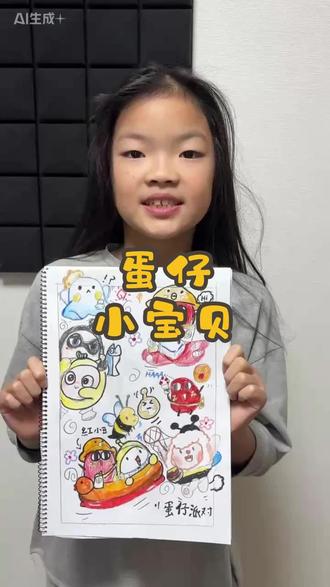 AI生成+
蛋仔
小宝贝
Hi
HAAA
红小豆
蛋仔派对